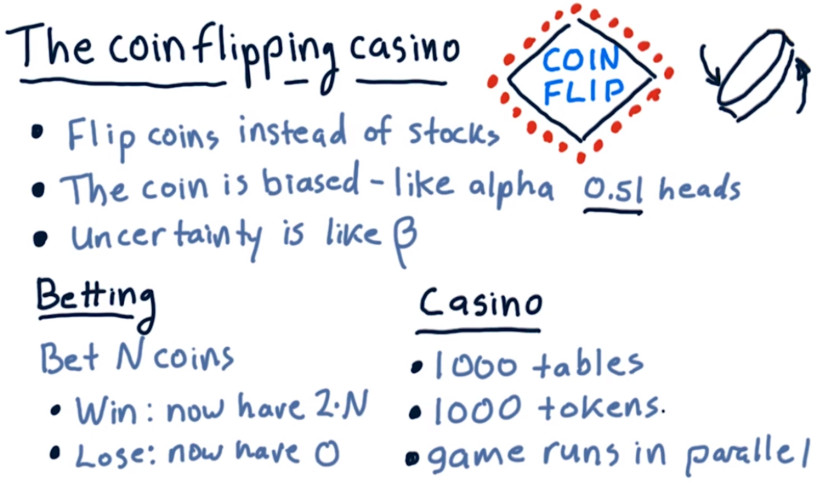 The coin flipping casino
COIN
FLIP
• Flip coins instead of stocks
• The coin is biased - like alpha 0.51 heads
• Uncertainty is like β
Betting
Bet N coins
• Win: now have 2·N
• Lose: now have 0
Casino
• 1000 tables
• 1000 tokens.
• game runs in parallel